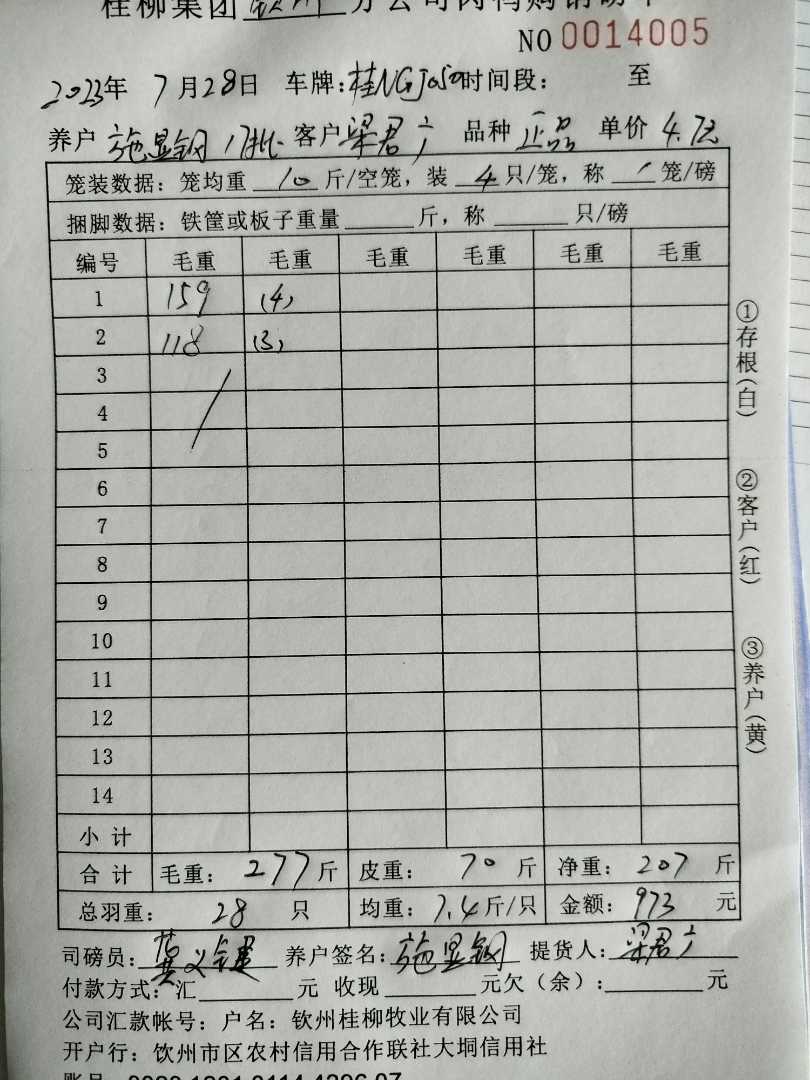 桂柳集团 钦州 分公司肉鸭购销磅单
NO 0014005
2023年 7月28日 车牌:桂NGJ050时间段: 至
养户 施显钢 1批 客户 梁君广 品种 正品 单价 4.7元
笼装数据: 笼均重 10 斤/空笼, 装 4 只/笼, 称 1 笼/磅
捆脚数据: 铁筐或板子重量______斤, 称______只/磅
编号 毛重 毛重 毛重 毛重 毛重 毛重
1 159 (4)
2 118 (3)
3
4
5
6
7
8
9
10
11
12
13
14
小计
合计 毛重: 277斤 皮重: 70斤 净重: 207斤
总羽重: 28 只 均重: 7.4斤/只 金额: 973 元
①存根(白) ②客户(红) ③养户(黄)
司磅员: 义键 养户签名: 施显钢 提货人: 梁君广
付款方式: 汇______元 收现______元欠(余):______元
公司汇款帐号: 户名: 钦州桂柳牧业有限公司
开户行: 钦州市区农村信用合作联社大垌信用社